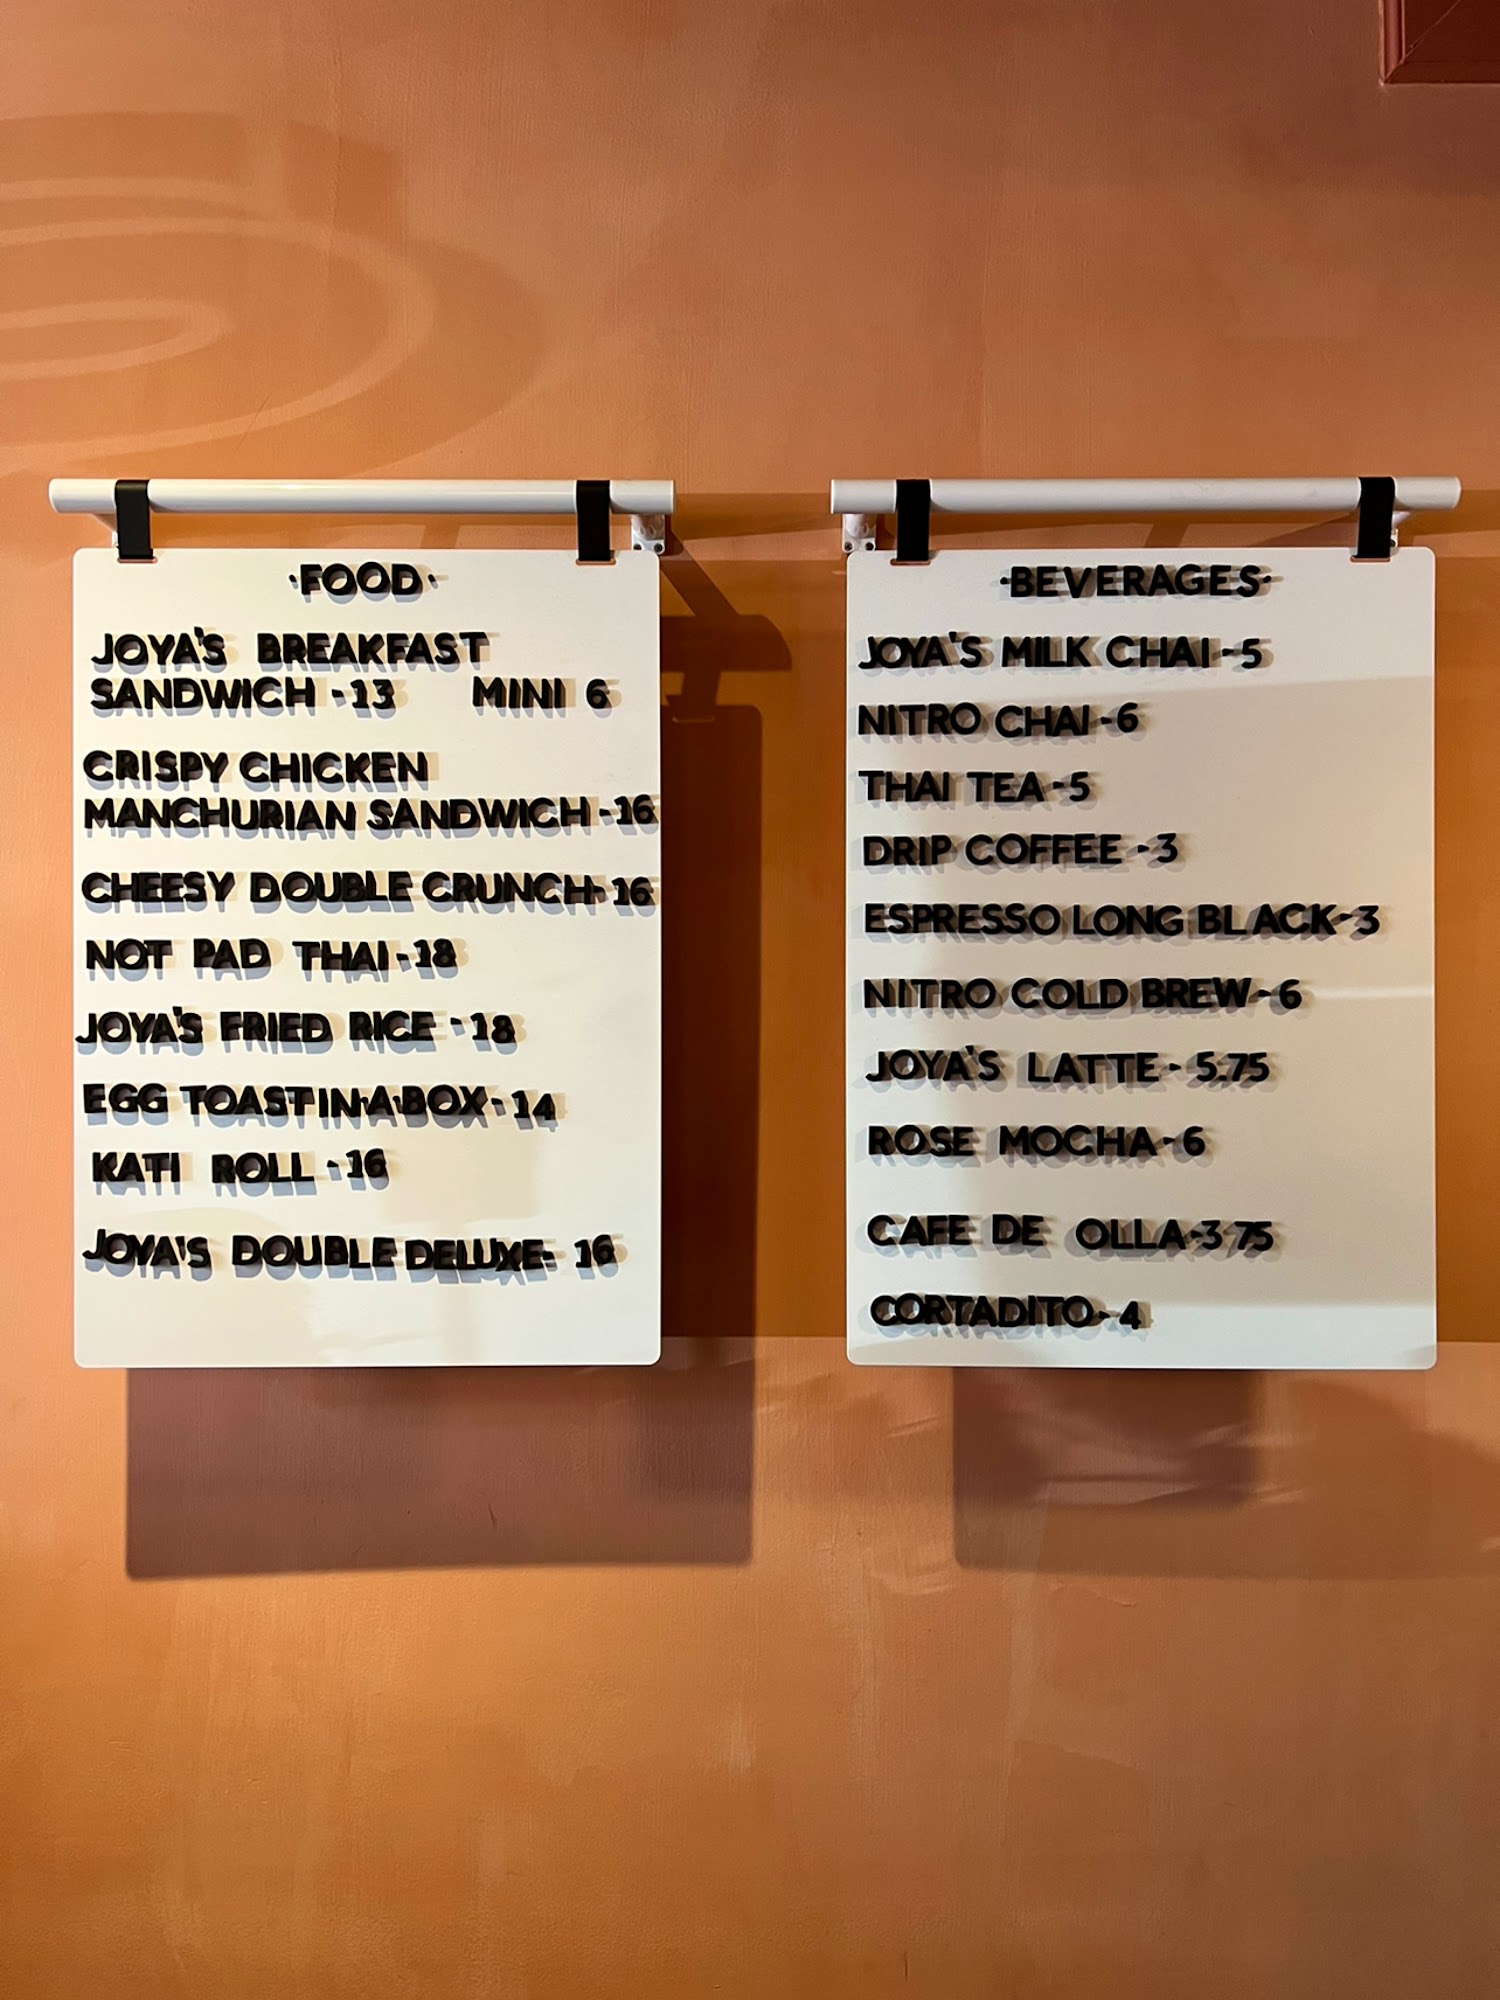 ·FOOD·
JOYA'S BREAKFAST
SANDWICH - 13 MINI 6
CRISPY CHICKEN
MANCHURIAN SANDWICH - 16
CHEESY DOUBLE CRUNCH - 16
NOT PAD THAI - 18
JOYA'S FRIED RICE - 18
EGG TOAST IN·A·BOX - 14
KATI ROLL - 16
JOYA'S DOUBLE DELUXE - 16
·BEVERAGES·
JOYA'S MILK CHAI - 5
NITRO CHAI - 6
THAI TEA - 5
DRIP COFFEE - 3
ESPRESSO LONG BLACK - 3
NITRO COLD BREW - 6
JOYA'S LATTE - 5.75
ROSE MOCHA - 6
CAFE DE OLLA - 3 75
CORTADITO - 4